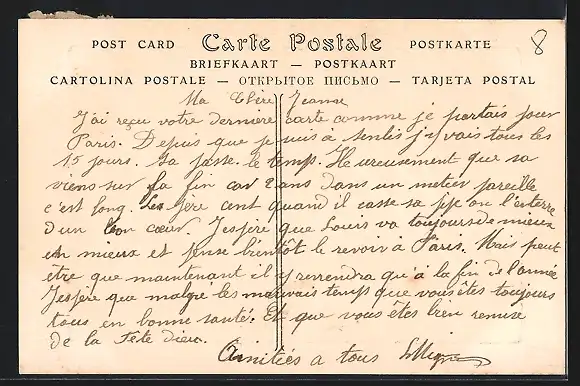 8
POST CARD Carte Postale POSTKARTE
BRIEFKAART — POSTKAART
CARTOLINA POSTALE — ОТКРЫТОЕ ПИСЬМО — TARJETA POSTAL
Ma Chère Jeanne
J'ai reçu votre dernière carte comme je partais pour
Paris. Depuis que je suis à Senlis j'y vais tous les
15 jours. Sa passe le temps. Heureusement que sa
viens sur la fin car 2 ans dans un metier pareille
c'est long. Les père cent quand il casse sa pipe on l'enterre
d'un bon cœur. J'espère que Louis va toujours de mieux
en mieux et pense bientôt le revoir à Paris. Mais peut
être que maintenant il y reviendra qu'à la fin de l'année
J'espère que malgré les mauvais temps que vous êtes toujours
tous en bonne santé. Et que vous êtes bien remise
de la Fête Dieu.
Amitiés a tous